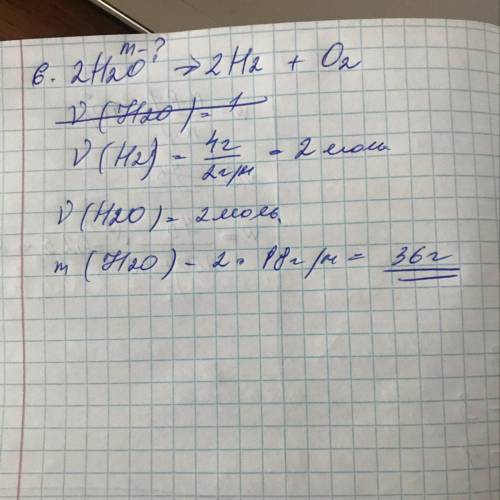 m-?
6. 2H2O → 2H2 + O2
ν(H2O) = 1
ν(H2) = 4г/2г/м = 2 моль
ν(H2O) = 2 моль.
m(H2O) = 2 · 18г/м = 36г